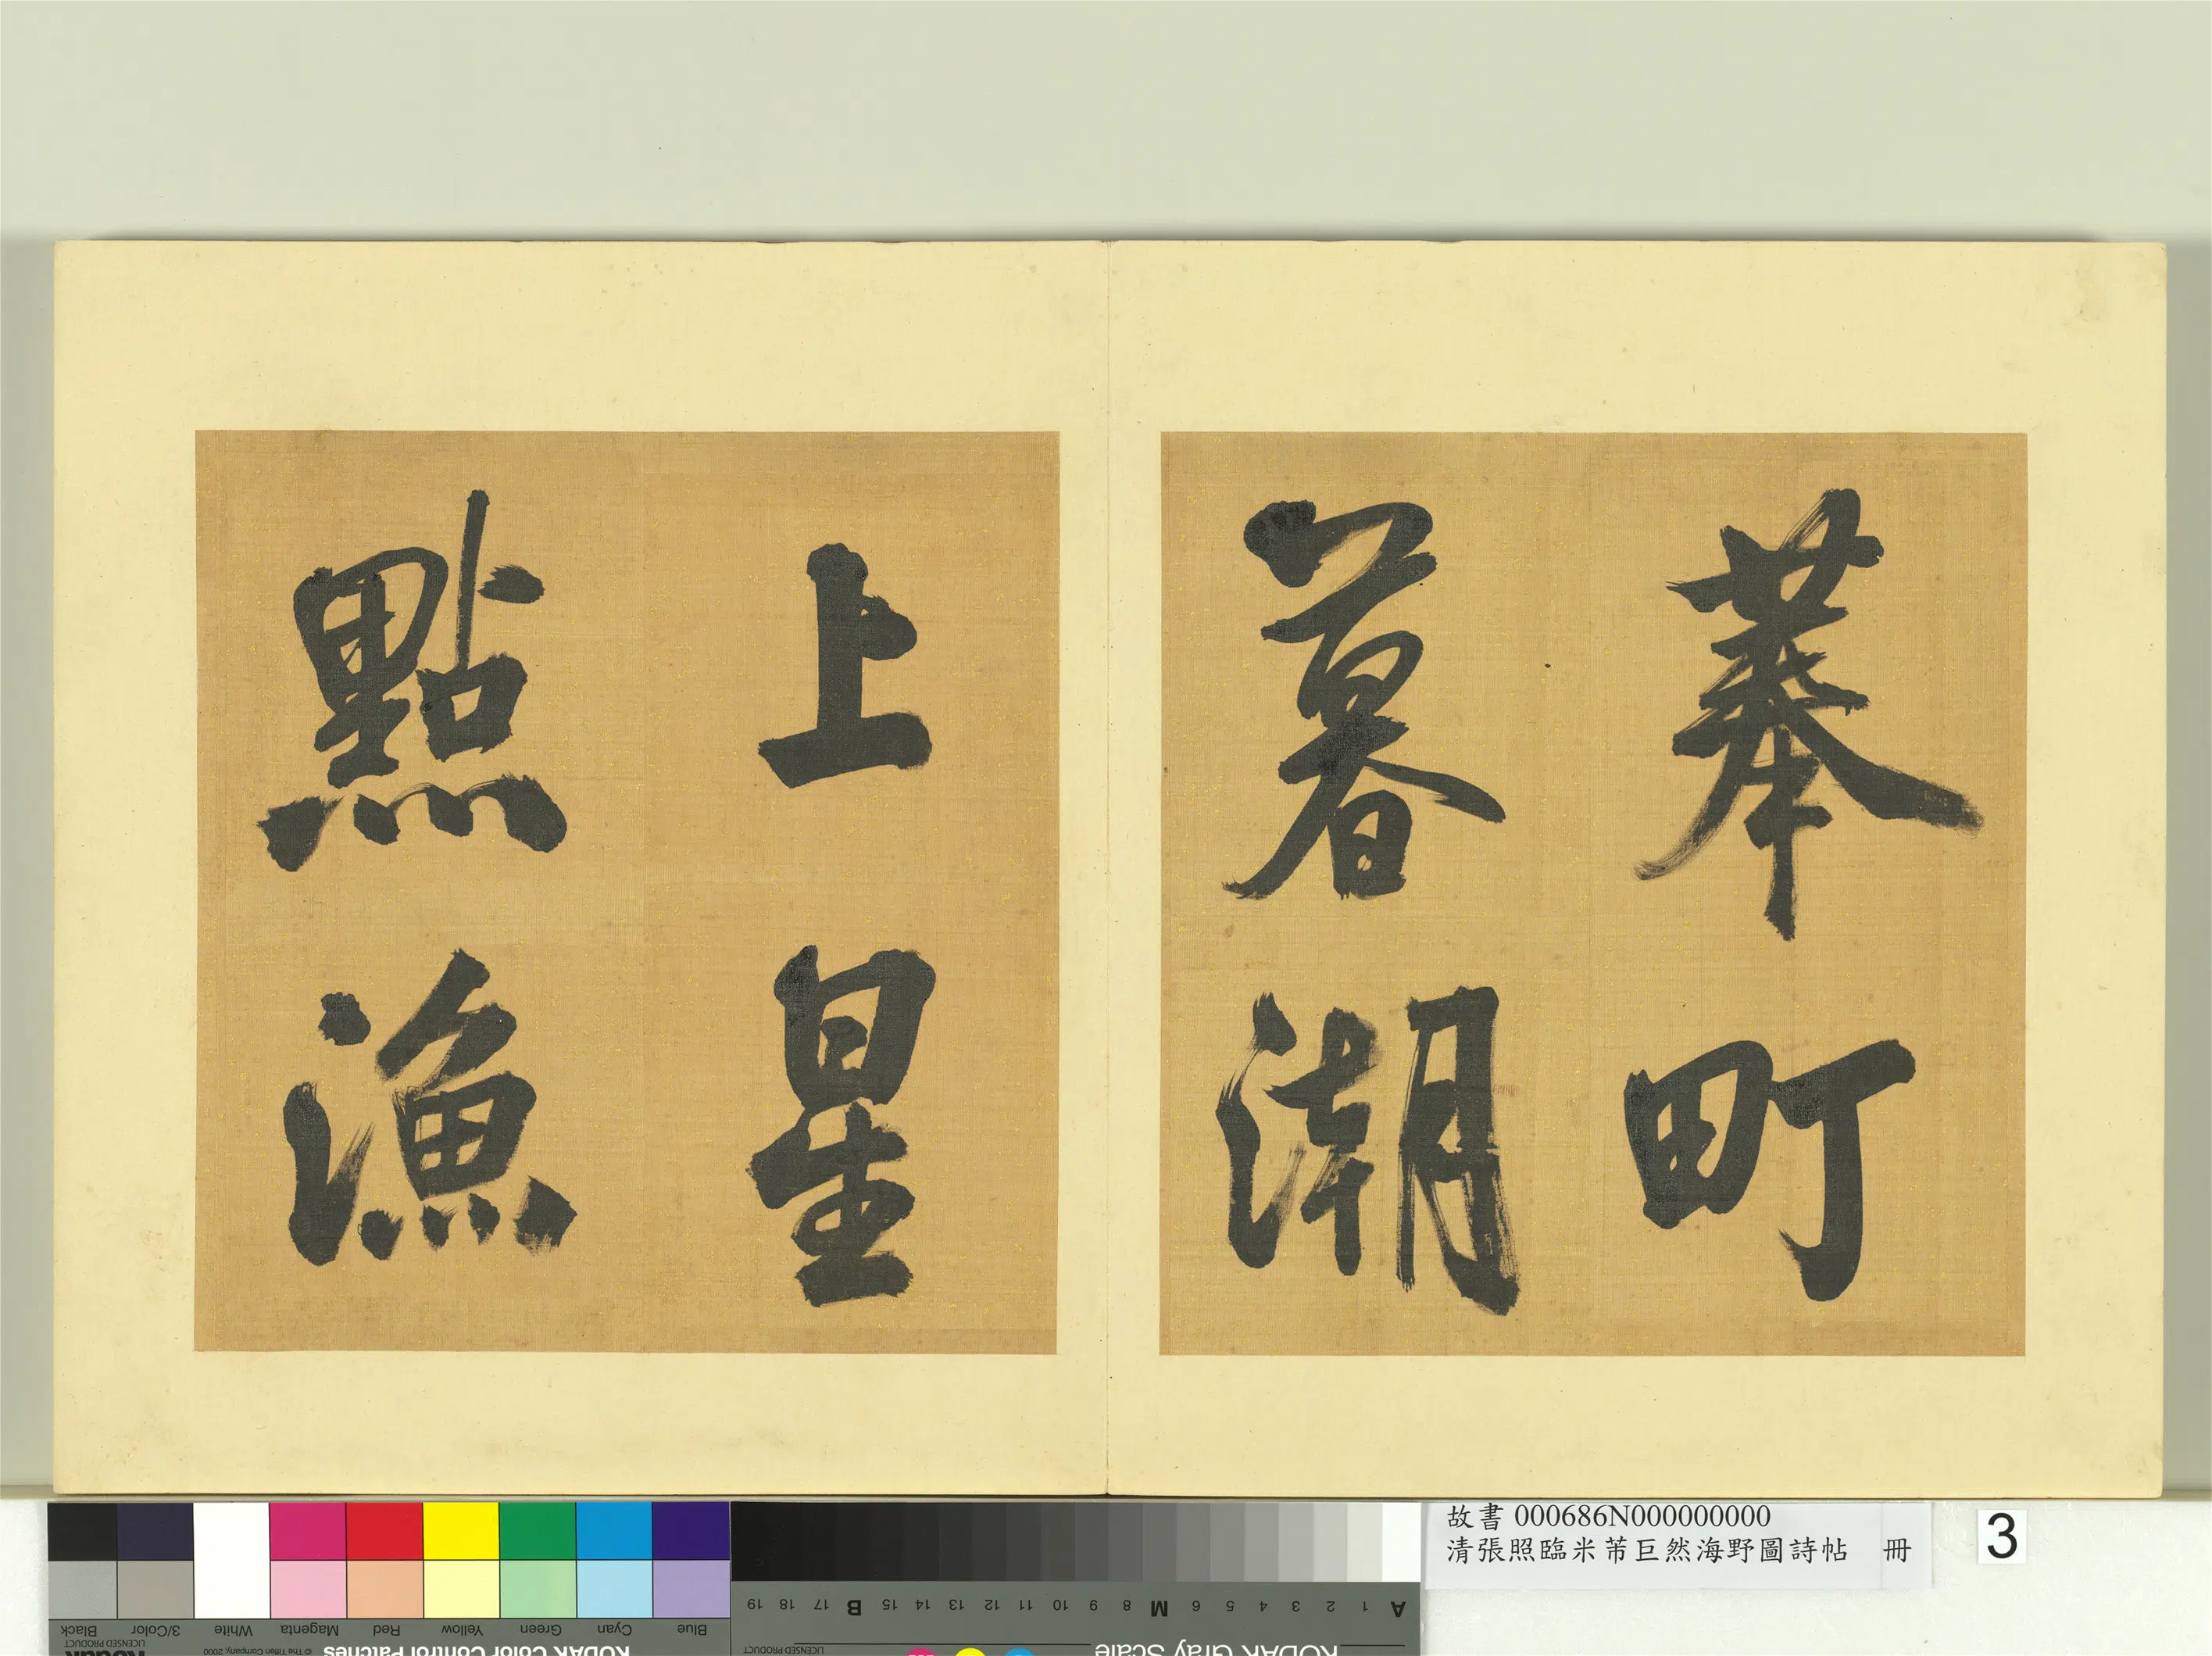 菶町
暮潮
上星
點漁
故書 000686N000000000
清張照臨米芾巨然海野圖詩帖 冊
3
KODAK Color Control Patches
© The Tiffen Company, 2000
LICENSED PRODUCT
Blue Cyan Green Yellow Red Magenta White 3/Color Black
KODAK Gray Scale
LICENSED PRODUCT
A 1 2 3 4 5 6 M 8 9 10 11 12 13 14 15 B 17 18 19